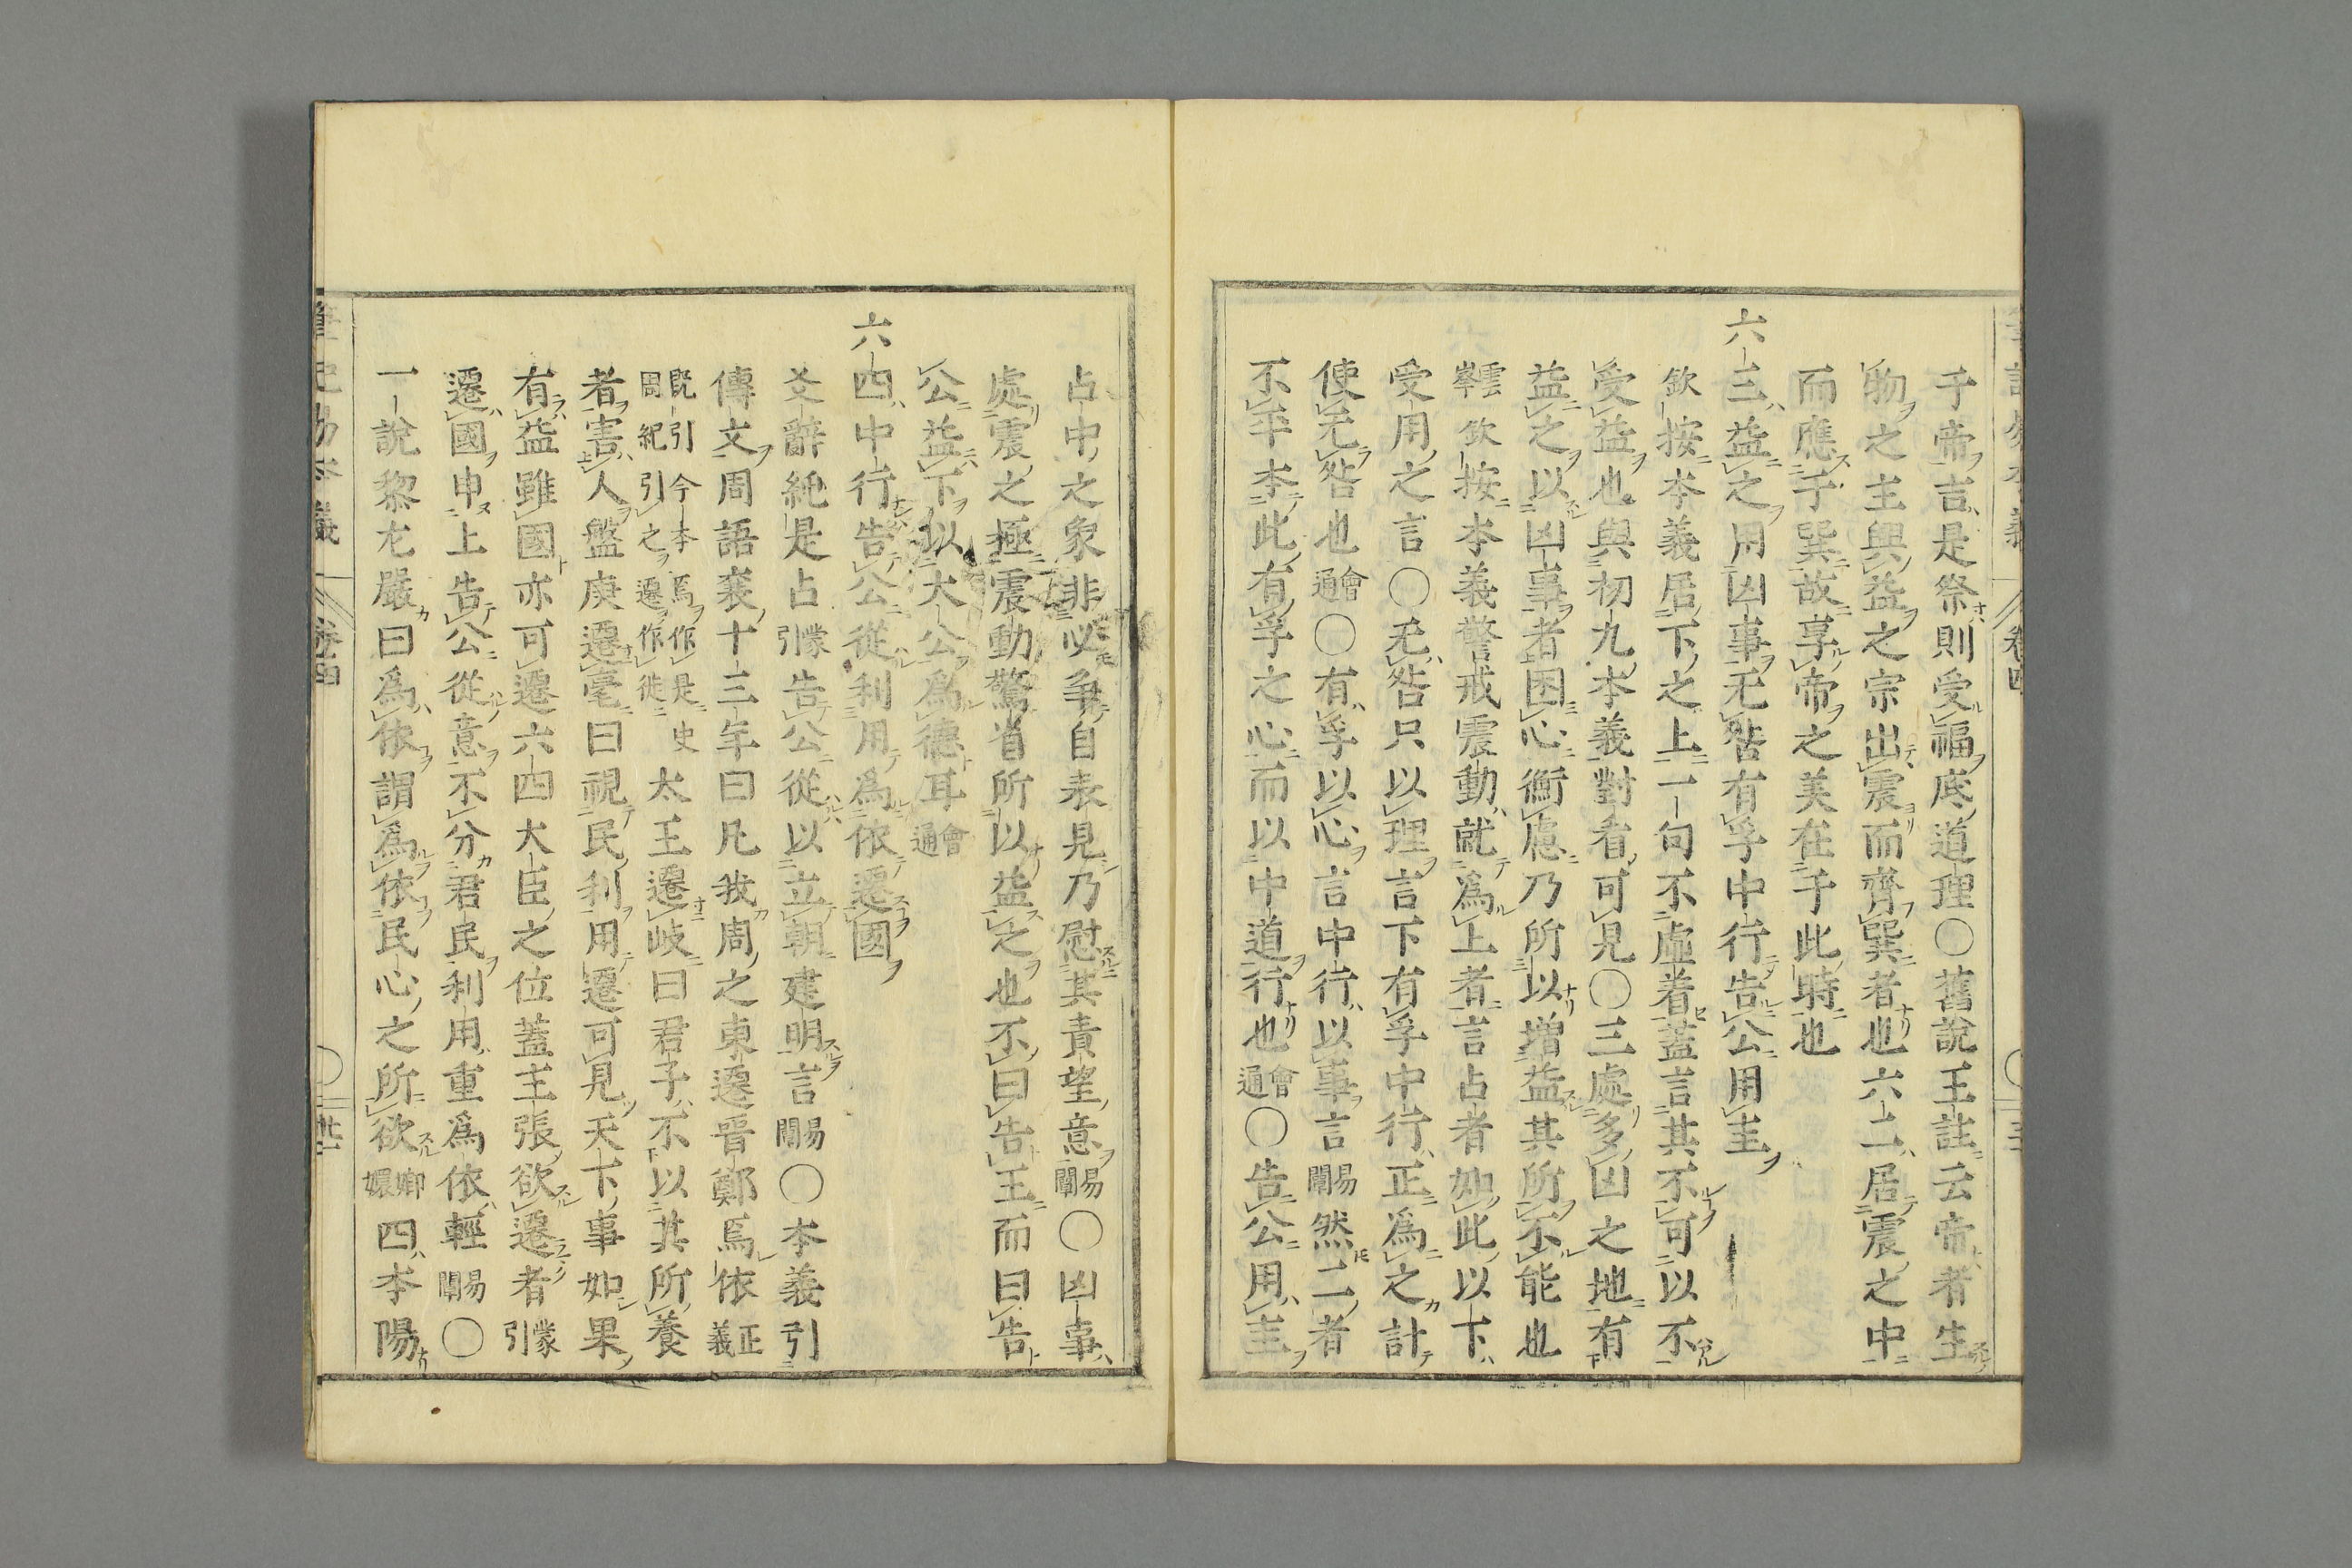 于帝吉是祭則受福底道理〇舊說王註云帝者生
物之主興益之宗出震而齊巽者也六二居震之中
而應于巽故享帝之美在于此時也
六三益之用凶事无咎有孚中行告公用圭
欽按本義居下之上一句不虛着蓋言其不可以不
受益也與初九本義對看可見〇三處多凶之地有
益之以凶事者困心衡慮乃所以增益其所不能也
雲峯 欽按本義警戒震動就爲上者言占者如此以下
受用之言〇无咎只以理言下有孚中行正爲之計
使无咎也會通〇有孚以心言中行以事言易闡然二者
不平本此有孚之心而以中道行也會通〇告公用圭
占中之象非必爭自表見乃慰其責望意易闡〇凶事
處震之極震動驚省所以益之也不曰告王而曰告
公益下以大公爲德耳會通
六四中行告公從利用爲依遷國
爻辭純是占蒙引告公從以立朝建明言易闡〇本義引
傳文周語襄十三年曰凡我周之東遷晋鄭焉依正義
既引今本焉作是史周紀引之遷作徙太王遷岐曰君子不以其所養
者害人盤庚遷亳曰視民利用遷可見天下事如果
有益雖國亦可遷六四大臣之位蓋主張欲遷者蒙引
遷國申上告公從意不分君民利用重爲依輕易闡〇
一說黎尨嚴曰爲依謂爲依民心之所欲嫏嬛四本陽
卷四